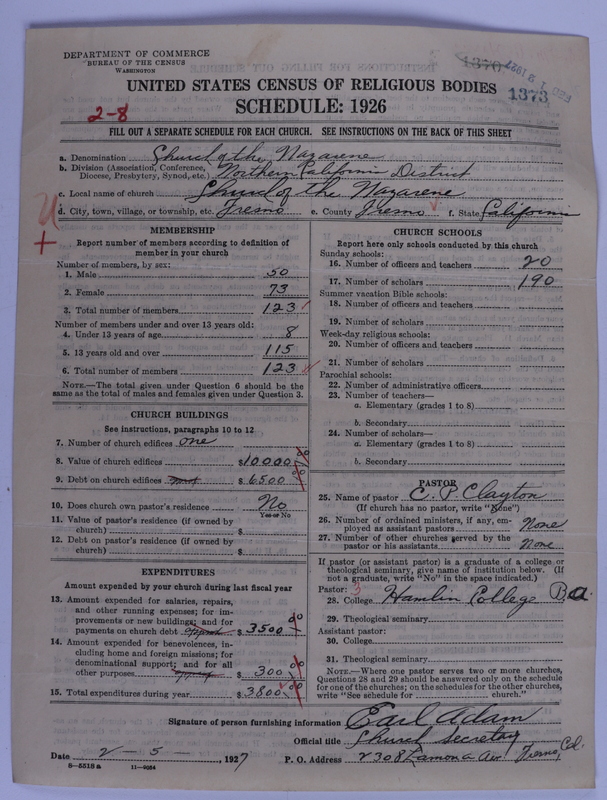 DEPARTMENT OF COMMERCE
BUREAU OF THE CENSUS
WASHINGTON
1370
FEB 12 1927
1373
UNITED STATES CENSUS OF RELIGIOUS BODIES
SCHEDULE: 1926
2-8
FILL OUT A SEPARATE SCHEDULE FOR EACH CHURCH. SEE INSTRUCTIONS ON THE BACK OF THIS SHEET
a. Denomination Church of the Nazarene
b. Division (Association, Conference, Diocese, Presbytery, Synod, etc.) Northern California District
c. Local name of church Church of the Nazarene
d. City, town, village, or township, etc. Fresno e. County Fresno f. State California
MEMBERSHIP
Report number of members according to definition of
member in your church
Number of members, by sex:
1. Male 50
2. Female 73
3. Total number of members 123
Number of members under and over 13 years old:
4. Under 13 years of age 8
5. 13 years old and over 115
6. Total number of members 123
NOTE.—The total given under Question 6 should be the
same as the total of males and females given under Question 3.
CHURCH BUILDINGS
See instructions, paragraphs 10 to 12
7. Number of church edifices one
8. Value of church edifices $10000 00
9. Debt on church edifices $6500 00
10. Does church own pastor's residence? No
Yes or No
11. Value of pastor's residence (if owned by
church) $
12. Debt on pastor's residence (if owned by
church) $
EXPENDITURES
Amount expended by your church during last fiscal year
13. Amount expended for salaries, repairs,
and other running expenses; for im-
provements or new buildings; and for
payments on church debt $3500 00
14. Amount expended for benevolences, in-
cluding home and foreign missions; for
denominational support; and for all
other purposes $300 00
15. Total expenditures during year $3800 00
CHURCH SCHOOLS
Report here only schools conducted by this church
Sunday schools:
16. Number of officers and teachers 20
17. Number of scholars 190
Summer vacation Bible schools:
18. Number of officers and teachers
19. Number of scholars
Week-day religious schools:
20. Number of officers and teachers
21. Number of scholars
Parochial schools:
22. Number of administrative officers
23. Number of teachers—
a. Elementary (grades 1 to 8)
b. Secondary
24. Number of scholars—
a. Elementary (grades 1 to 8)
b. Secondary
PASTOR
25. Name of pastor C. P. Clayton
(If church has no pastor, write "None")
26. Number of ordained ministers, if any, em-
ployed as assistant pastors None
27. Number of other churches served by the
pastor or his assistants None
If pastor (or assistant pastor) is a graduate of a college or
theological seminary, give name of institution below. (If
not a graduate, write "No" in the space indicated.)
Pastor: 3
28. College Hamlin College B.a.
29. Theological seminary
Assistant pastor:
30. College
31. Theological seminary
NOTE.—Where one pastor serves two or more churches,
Questions 28 and 29 should be answered only on the schedule
for one of the churches; on the schedules for the other churches,
write "See schedule for church."
Signature of person furnishing information Earl Adam
Official title Church Secretary
Date 2 - 5 - , 1927 P. O. Address 2308 Ramona Av. Fresno, Cal.
8—5518 a 11—9064